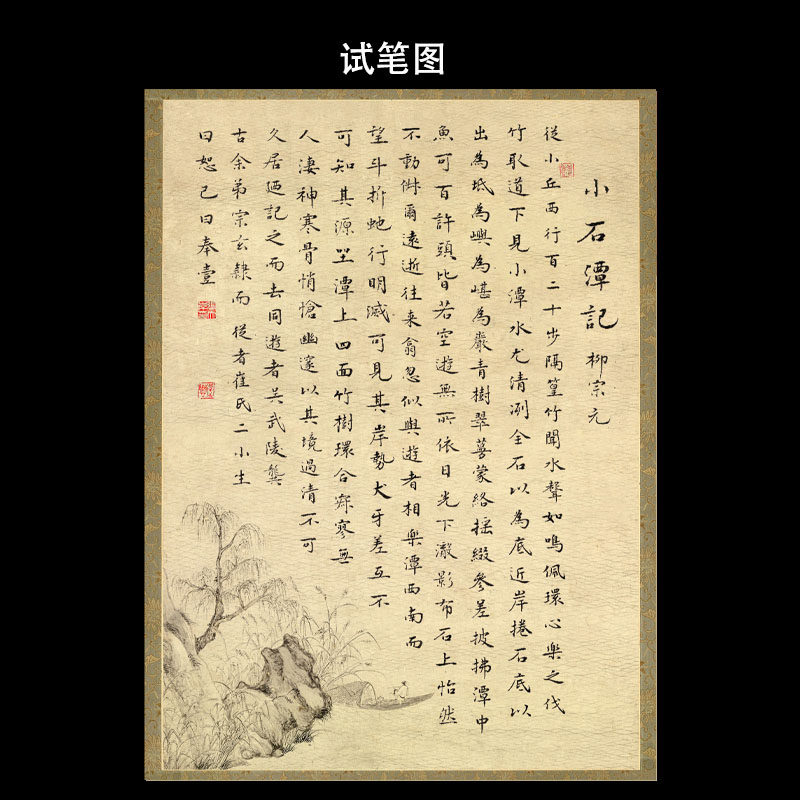 试笔图
小石潭記 柳宗元
從小丘西行百二十步隔篁竹聞水聲如鳴佩環心樂之伐
竹取道下見小潭水尤清冽全石以為底近岸捲石底以
出為坻為嶼為嵁為巖青樹翠蔓蒙絡搖綴參差披拂潭中
魚可百許頭皆若空遊無所依日光下澈影布石上怡然
不動俶爾遠逝往来翕忽似與遊者相樂潭西南而
望斗折蛇行明滅可見其岸勢犬牙差互不
可知其源坐潭上四面竹樹環合寂寥無
人淒神寒骨悄愴幽邃以其境過清不可
久居廼記之而去同遊者吴武陵龔
古余弟宗玄隸而從者崔氏二小生
曰恕己曰奉壹